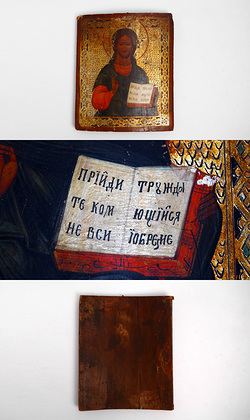 ПРІЙДИ
ТЕ КОМ
НЕ ВСИ
ТРУЖДА
ЮЩІЙСЯ
ІОБРЕМЕ